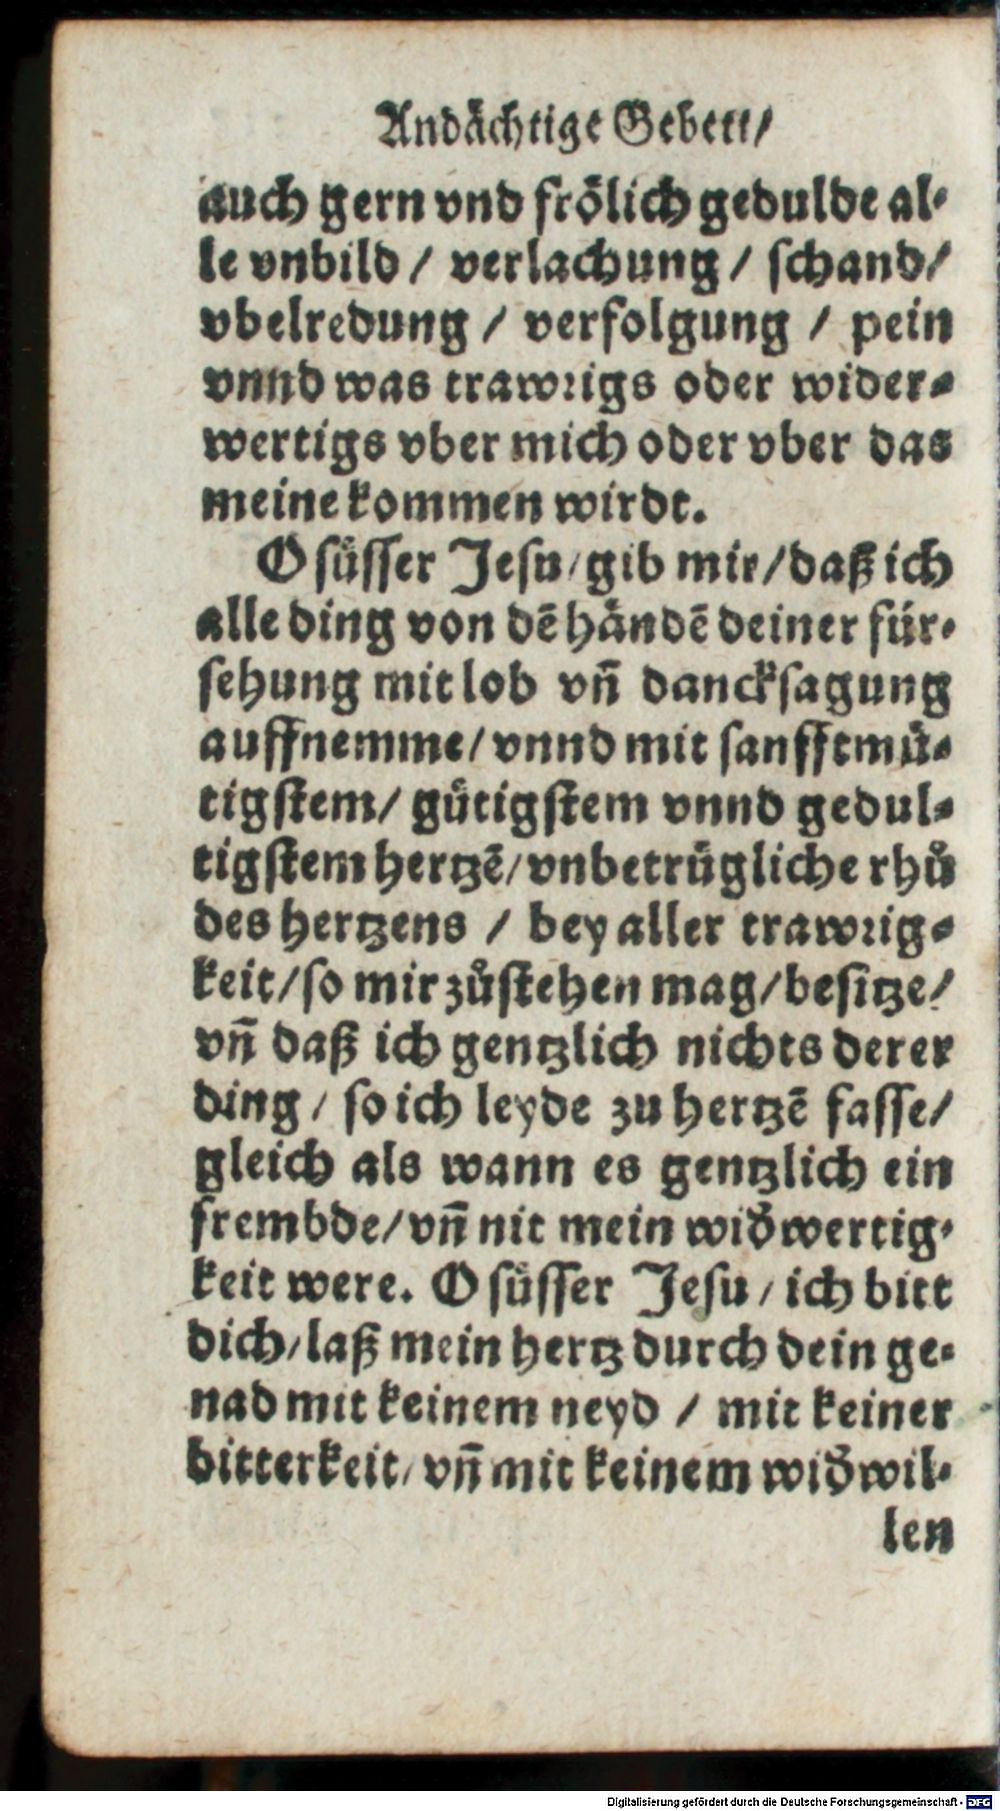 Andächtige Gebett/
auch gern vnd frölich gedulde al-
le vnbild / verlachung / schand/
vbelredung / verfolgung / pein
vnnd was trawrigs oder wider-
wertigs vber mich oder vber das
meine kommen wirdt.
O süsser Jesu/gib mir/daß ich
alle ding von dē händē deiner für-
sehung mit lob vn̄ dancksagung
auffnemme/vnnd mit sanfftmü-
tigstem/ gütigstem vnnd gedul-
tigstem hertzē/vnbetrügliche rhů
des hertzens / bey aller trawrig-
keit/so mir zůstehen mag/besitze/
vn̄ daß ich gentzlich nichts derer
ding / so ich leyde zu hertzē fasse/
gleich als wann es gentzlich ein
frembde/vn̄ nit mein wid̄wertig-
keit were. O süsser Jesu / ich bitt
dich/laß mein hertz durch dein ge-
nad mit keinem neyd / mit keiner
bitterkeit/vn̄ mit keinem wid̄wil-
len
Digitalisierung gefördert durch die Deutsche Forschungsgemeinschaft - DFG